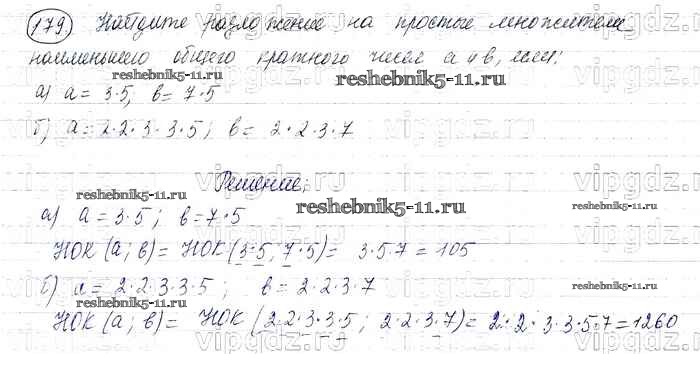 179) Найдите разложение на простые множители
наименьшего общего кратного чисел a и b, если:
reshebnik5-11.ru reshebnik5-11.ru
а) a = 3·5, b = 7·5
б) a = 2·2·3·3·5; b = 2·2·3·7
vipgdz.ru
Решение;
reshebnik5-11.ru
reshebnik5-11.ru
а) a = 3·5; b = 7·5
НОК (a; b) = НОК (3·5, 7·5) = 3·5·7 = 105
б) a = 2·2·3·3·5; b = 2·2·3·7
reshebnik5-11.ru reshebnik5-11.ru
НОК (a; b) = НОК (2·2·3·3·5; 2·2·3·7) = 2·2·3·3·5·7 = 1260
vipgdz.ru